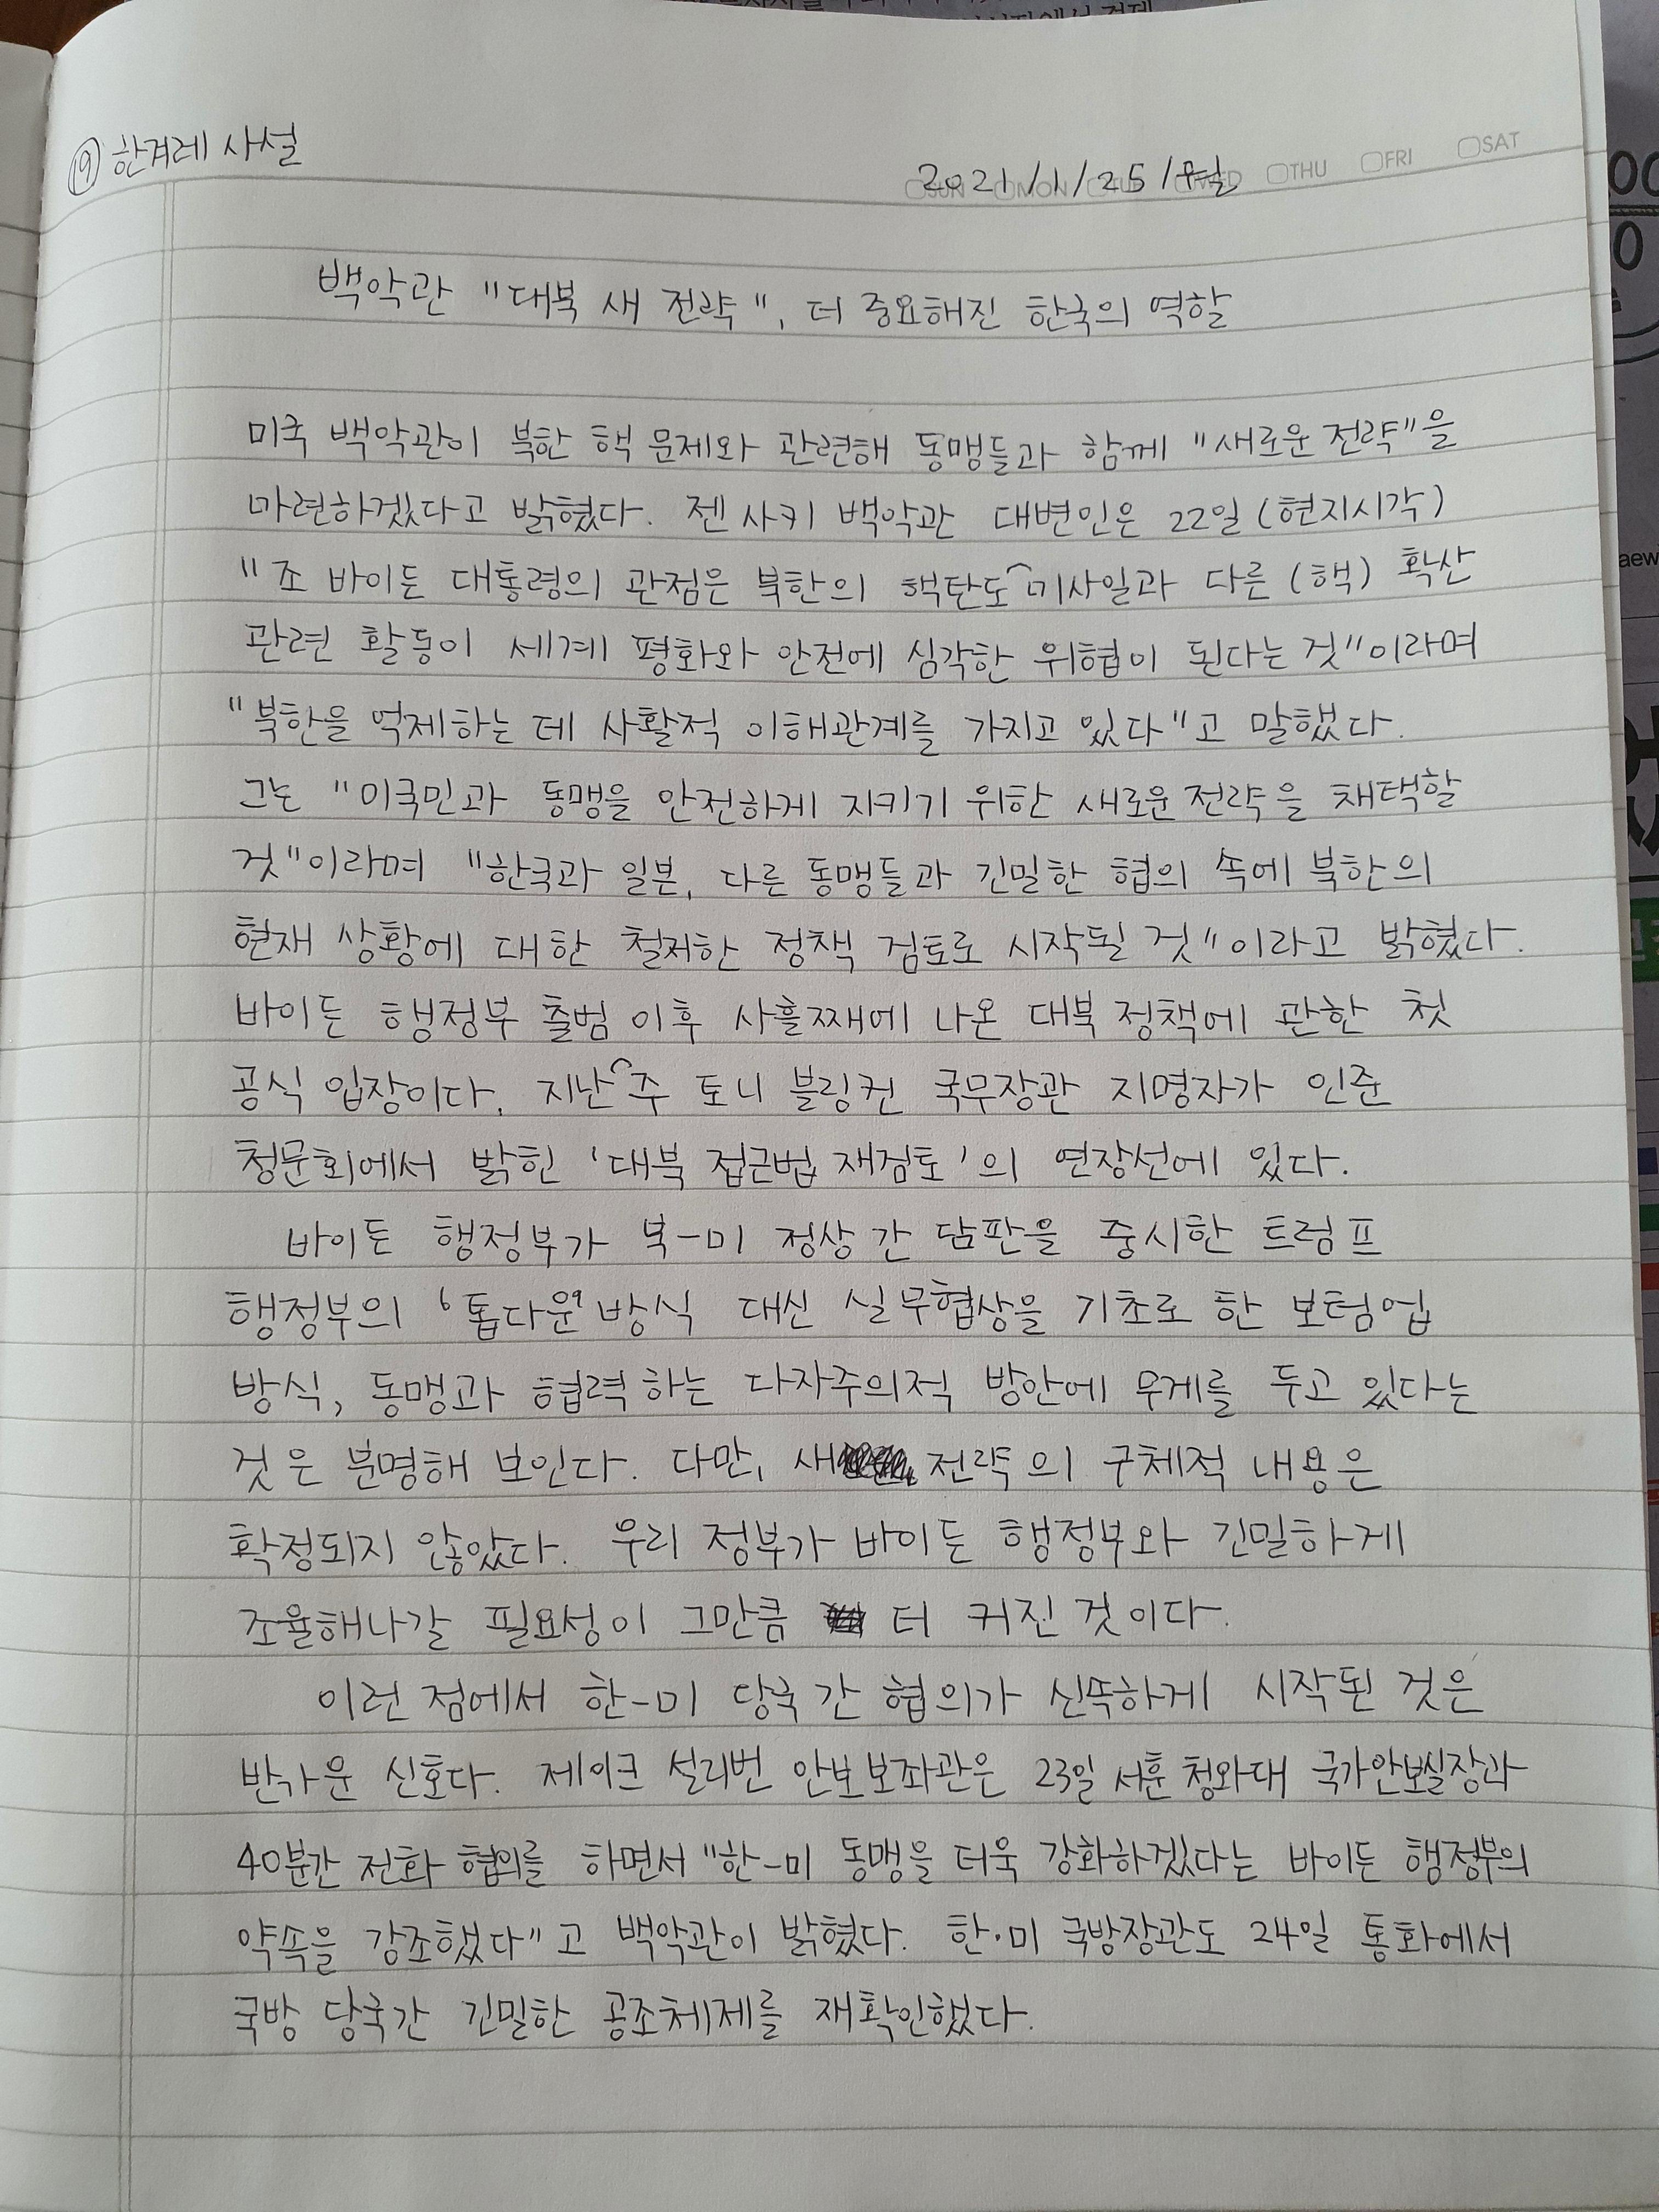 ⑲ 한겨레 사설
2021/1/25/월
SUN MON TUE WED THU FRI SAT
백악관 "대북 새 전략", 더 중요해진 한국의 역할
미국 백악관이 북한 핵 문제와 관련해 동맹들과 함께 "새로운 전략"을
마련하겠다고 밝혔다. 젠 사키 백악관 대변인은 22일 (현지시각)
"조 바이든 대통령의 관점은 북한의 핵탄도 미사일과 다른 (핵) 확산
관련 활동이 세계 평화와 안전에 심각한 위협이 된다는 것"이라며
"북한을 억제하는 데 사활적 이해관계를 가지고 있다"고 말했다.
그는 "미국민과 동맹을 안전하게 지키기 위한 새로운 전략을 채택할
것"이라며 "한국과 일본, 다른 동맹들과 긴밀한 협의 속에 북한의
현재 상황에 대한 철저한 정책 검토로 시작될 것"이라고 밝혔다.
바이든 행정부 출범 이후 사흘째에 나온 대북 정책에 관한 첫
공식 입장이다. 지난 주 토니 블링컨 국무장관 지명자가 인준
청문회에서 밝힌 '대북 접근법 재검토'의 연장선에 있다.
바이든 행정부가 북-미 정상 간 담판을 중시한 트럼프
행정부의 '톱다운' 방식 대신 실무협상을 기초로 한 보텀업
방식, 동맹과 협력하는 다자주의적 방안에 무게를 두고 있다는
것은 분명해 보인다. 다만, 새 전략의 구체적 내용은
확정되지 않았다. 우리 정부가 바이든 행정부와 긴밀하게
조율해나갈 필요성이 그만큼 더 커진 것이다.
이런 점에서 한-미 당국 간 협의가 신뜩하게 시작된 것은
반가운 신호다. 제이크 설리번 안보보좌관은 23일 서훈 청와대 국가안보실장과
40분간 전화 협의를 하면서 "한-미 동맹을 더욱 강화하겠다는 바이든 행정부의
약속을 강조했다"고 백악관이 밝혔다. 한·미 국방장관도 24일 통화에서
국방 당국간 긴밀한 공조체제를 재확인했다.